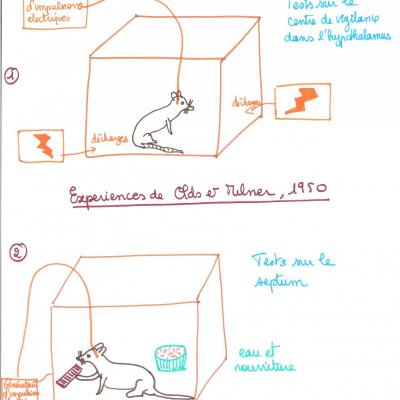 d'impulsions
électriques
Tests sur le
centre de vigilance
dans l'hypothalamus
①
décharges
décharges
Expériences de Olds et Milner, 1950
②
Tests sur le
septum
eau et
nourriture
Générateur
d'impulsions